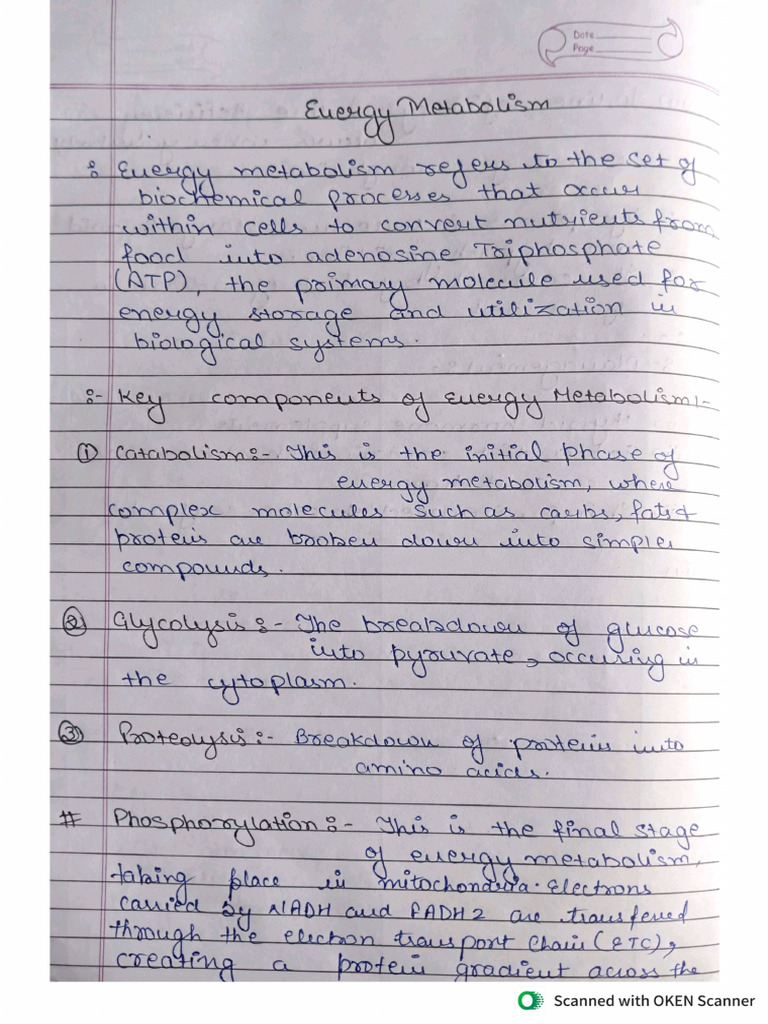 Date
Page
Energy Metabolism
: Energy metabolism refers to the set of
biochemical processes that occur
within cells to convert nutrients from
food into adenosine Triphosphate
(ATP), the primary molecule used for
energy storage and utilization in
biological systems.
:- Key components of Energy Metabolism:-
① Catabolism:- This is the initial phase of
energy metabolism, where
complex molecules such as carbs, fats &
protein are broken down into simpler
compounds.
② Glycolysis:- The breakdown of glucose
into pyruvate, occuring in
the cytoplasm.
③ Proteolysis:- Breakdown of protein into
amino acids.
# Phosphorylation:- This is the final stage
of energy metabolism,
taking place in mitochondria. Electrons
carried by NADH and FADH2 are transferred
through the electron transport Chain (ETC),
creating a protein gradient across the
Scanned with OKEN Scanner